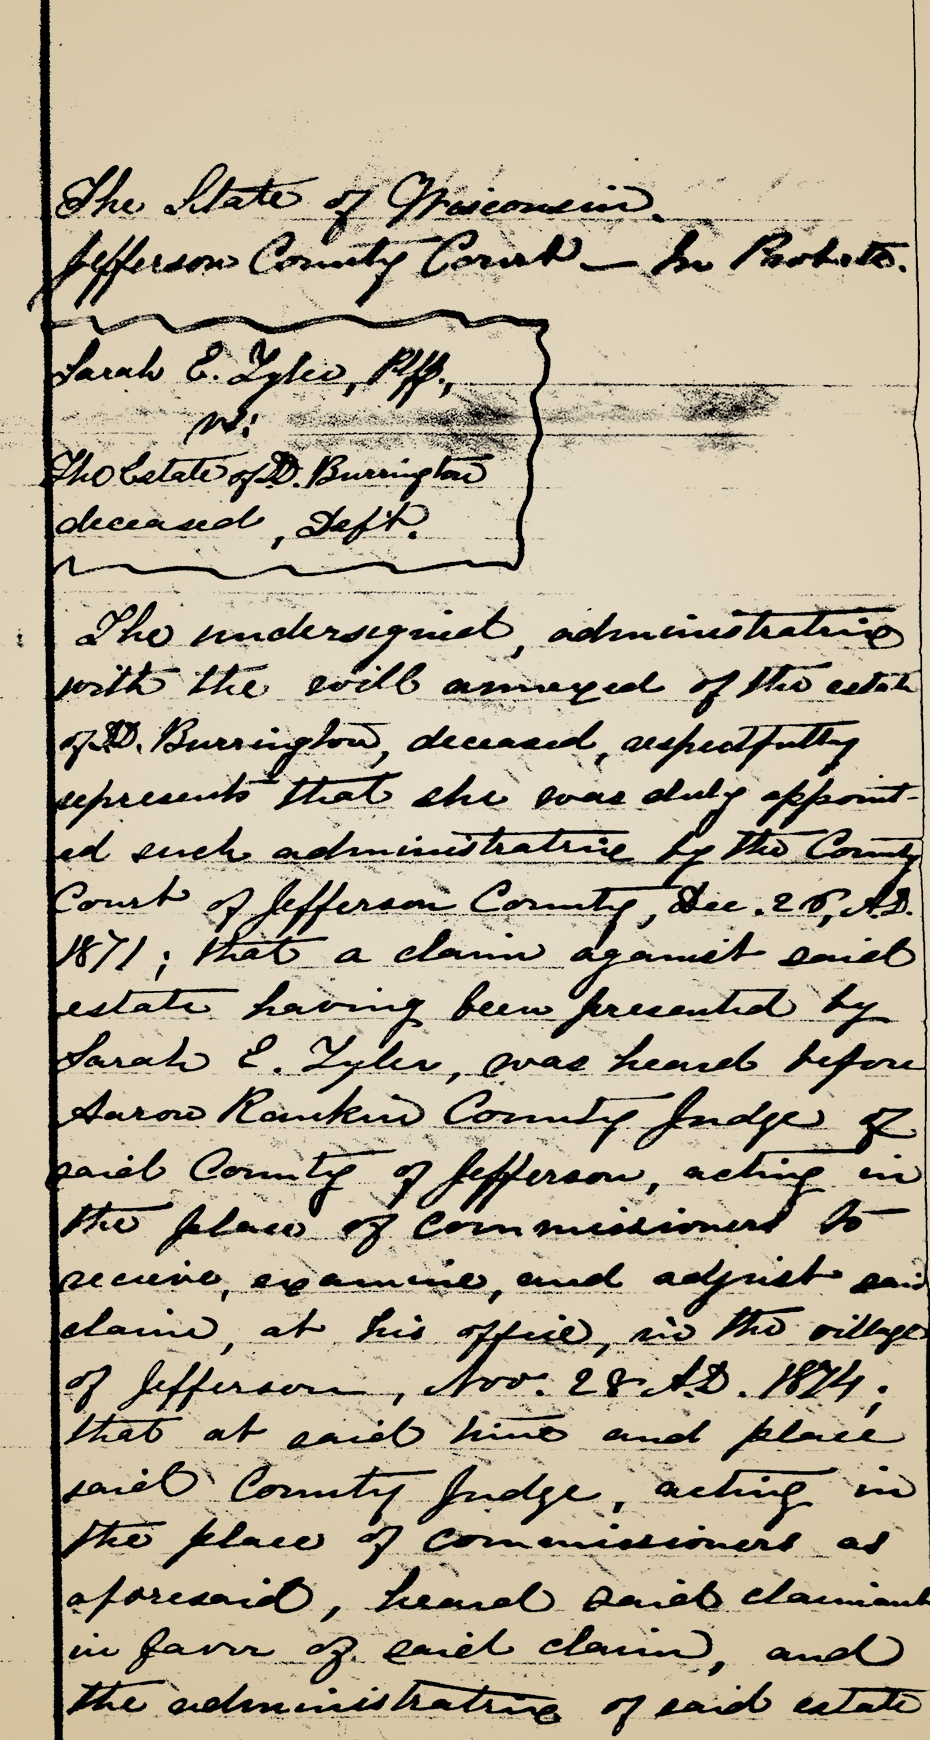 The State of Wisconsin.
Jefferson County Court — In Probate.
Sarah E. Tyler, Plff.,
vs:
The Estate of D. Burrington
deceased, Deft.
The undersigned, administratrix
with the will annexed of the estate
of D. Burrington, deceased, respectfully
represents that she was duly appoint-
ed such administratrix by the County
Court of Jefferson County, Dec. 26, A.D.
1871; that a claim against said
estate having been presented by
Sarah E. Tyler, was heard before
Aaron Rankin County Judge of
said County of Jefferson, acting in
the place of commissioners to
receive, examine, and adjust said
claim, at his office, in the village
of Jefferson, Nov. 28 A.D. 1874;
that at said time and place
said County Judge, acting in
the place of commissioners as
aforesaid, heard said claimant
in favor of said claim, and
the administratrix of said estate